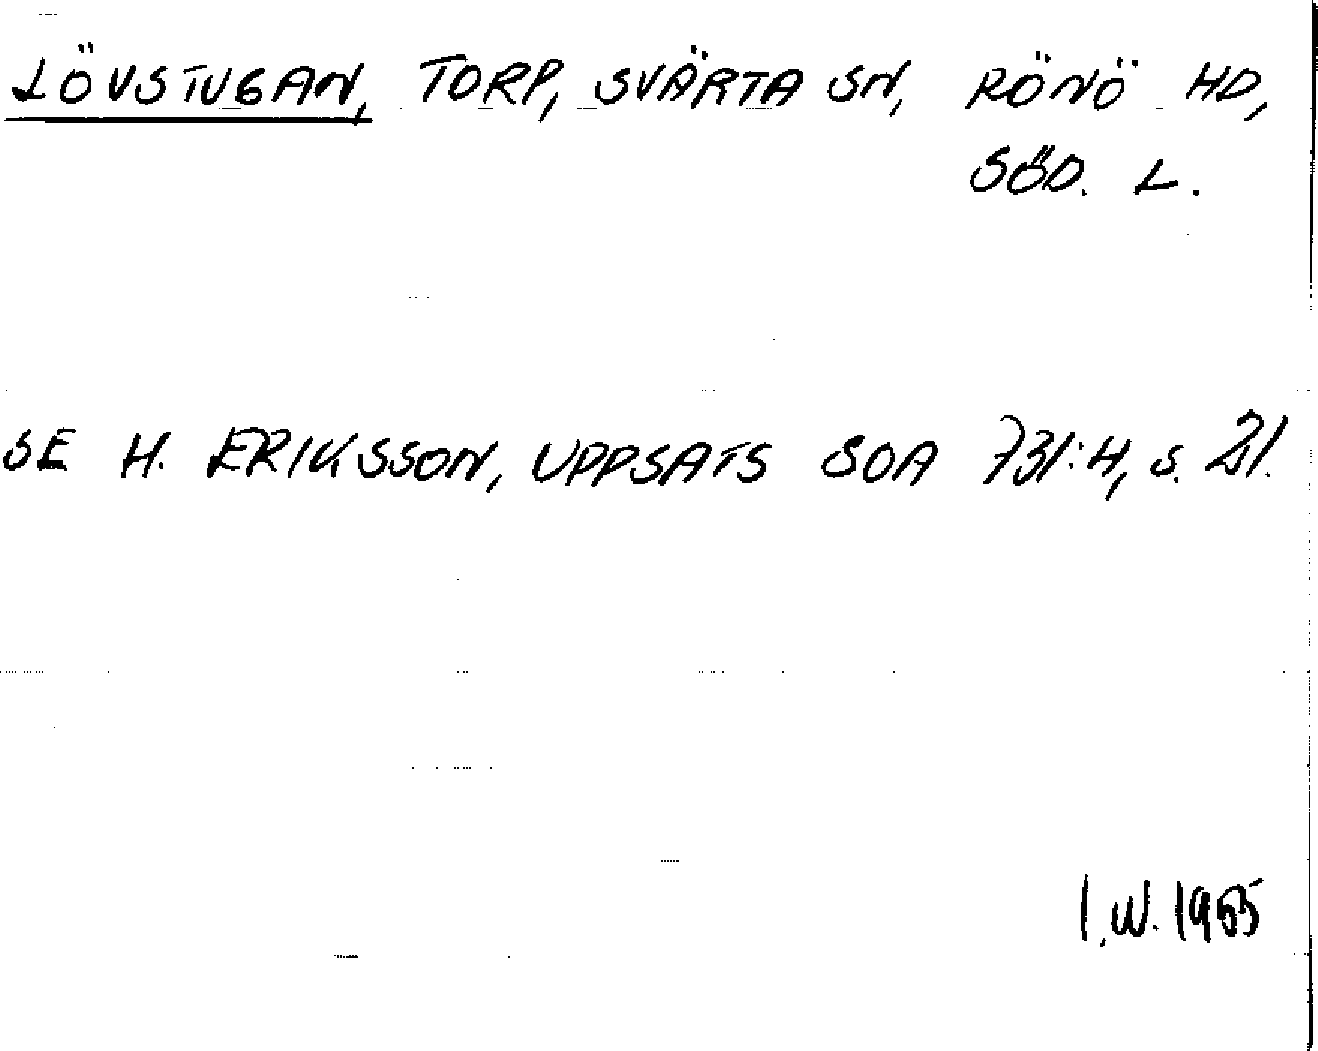 LÖVSTUGAN, TORP, SVÄRTA SN, RÖNÖ HD,
SÖD. L.
SE H. ERIKSSON, UPPSATS SOA 731:4, S. 21.
I.W. 1955